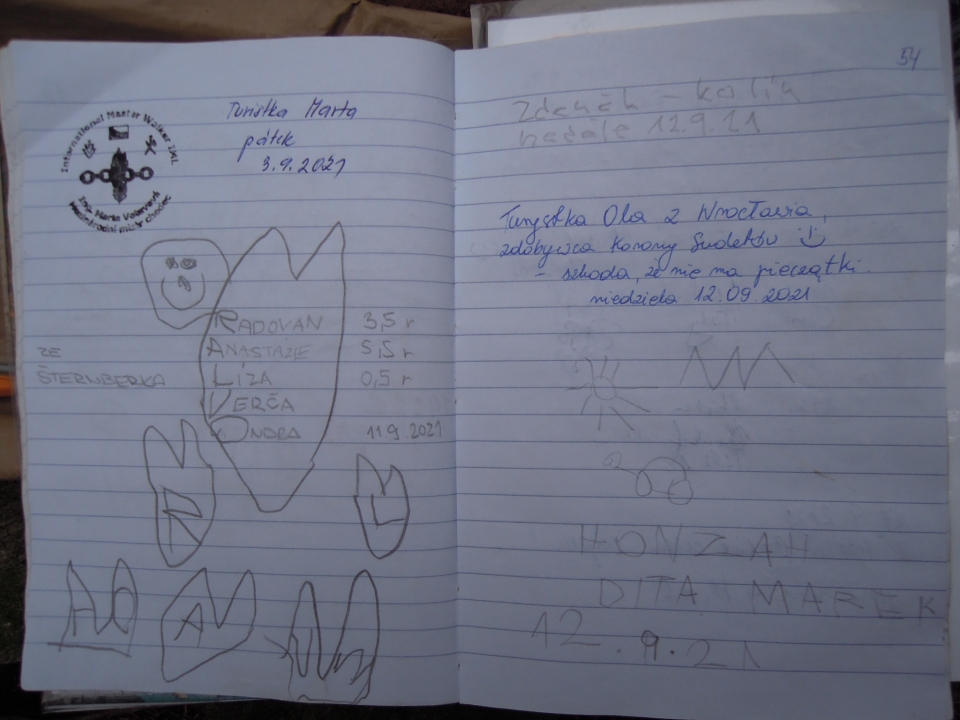 International Master Walker IML
Ing. Marta
Mezinárodní mistr chodec
Turistka Marta
pátek
3.9.2021
RADOVAN 3,5 r
ANASTÁZIE 5,5 r
LÍZA 0,5 r
VERČA
ONDRA 11.9.2021
ZE
ŠTERNBERKA
R
L
A
54
Zdeněk - kolín
neděle 12.9.21
Turystka Ola z Wrocławia,
zdobywca Korony Sudetów
- szkoda, że nie ma pieczątki.
niedziela 12.09.2021
HONZA H
DITA MAREK
12.9.21